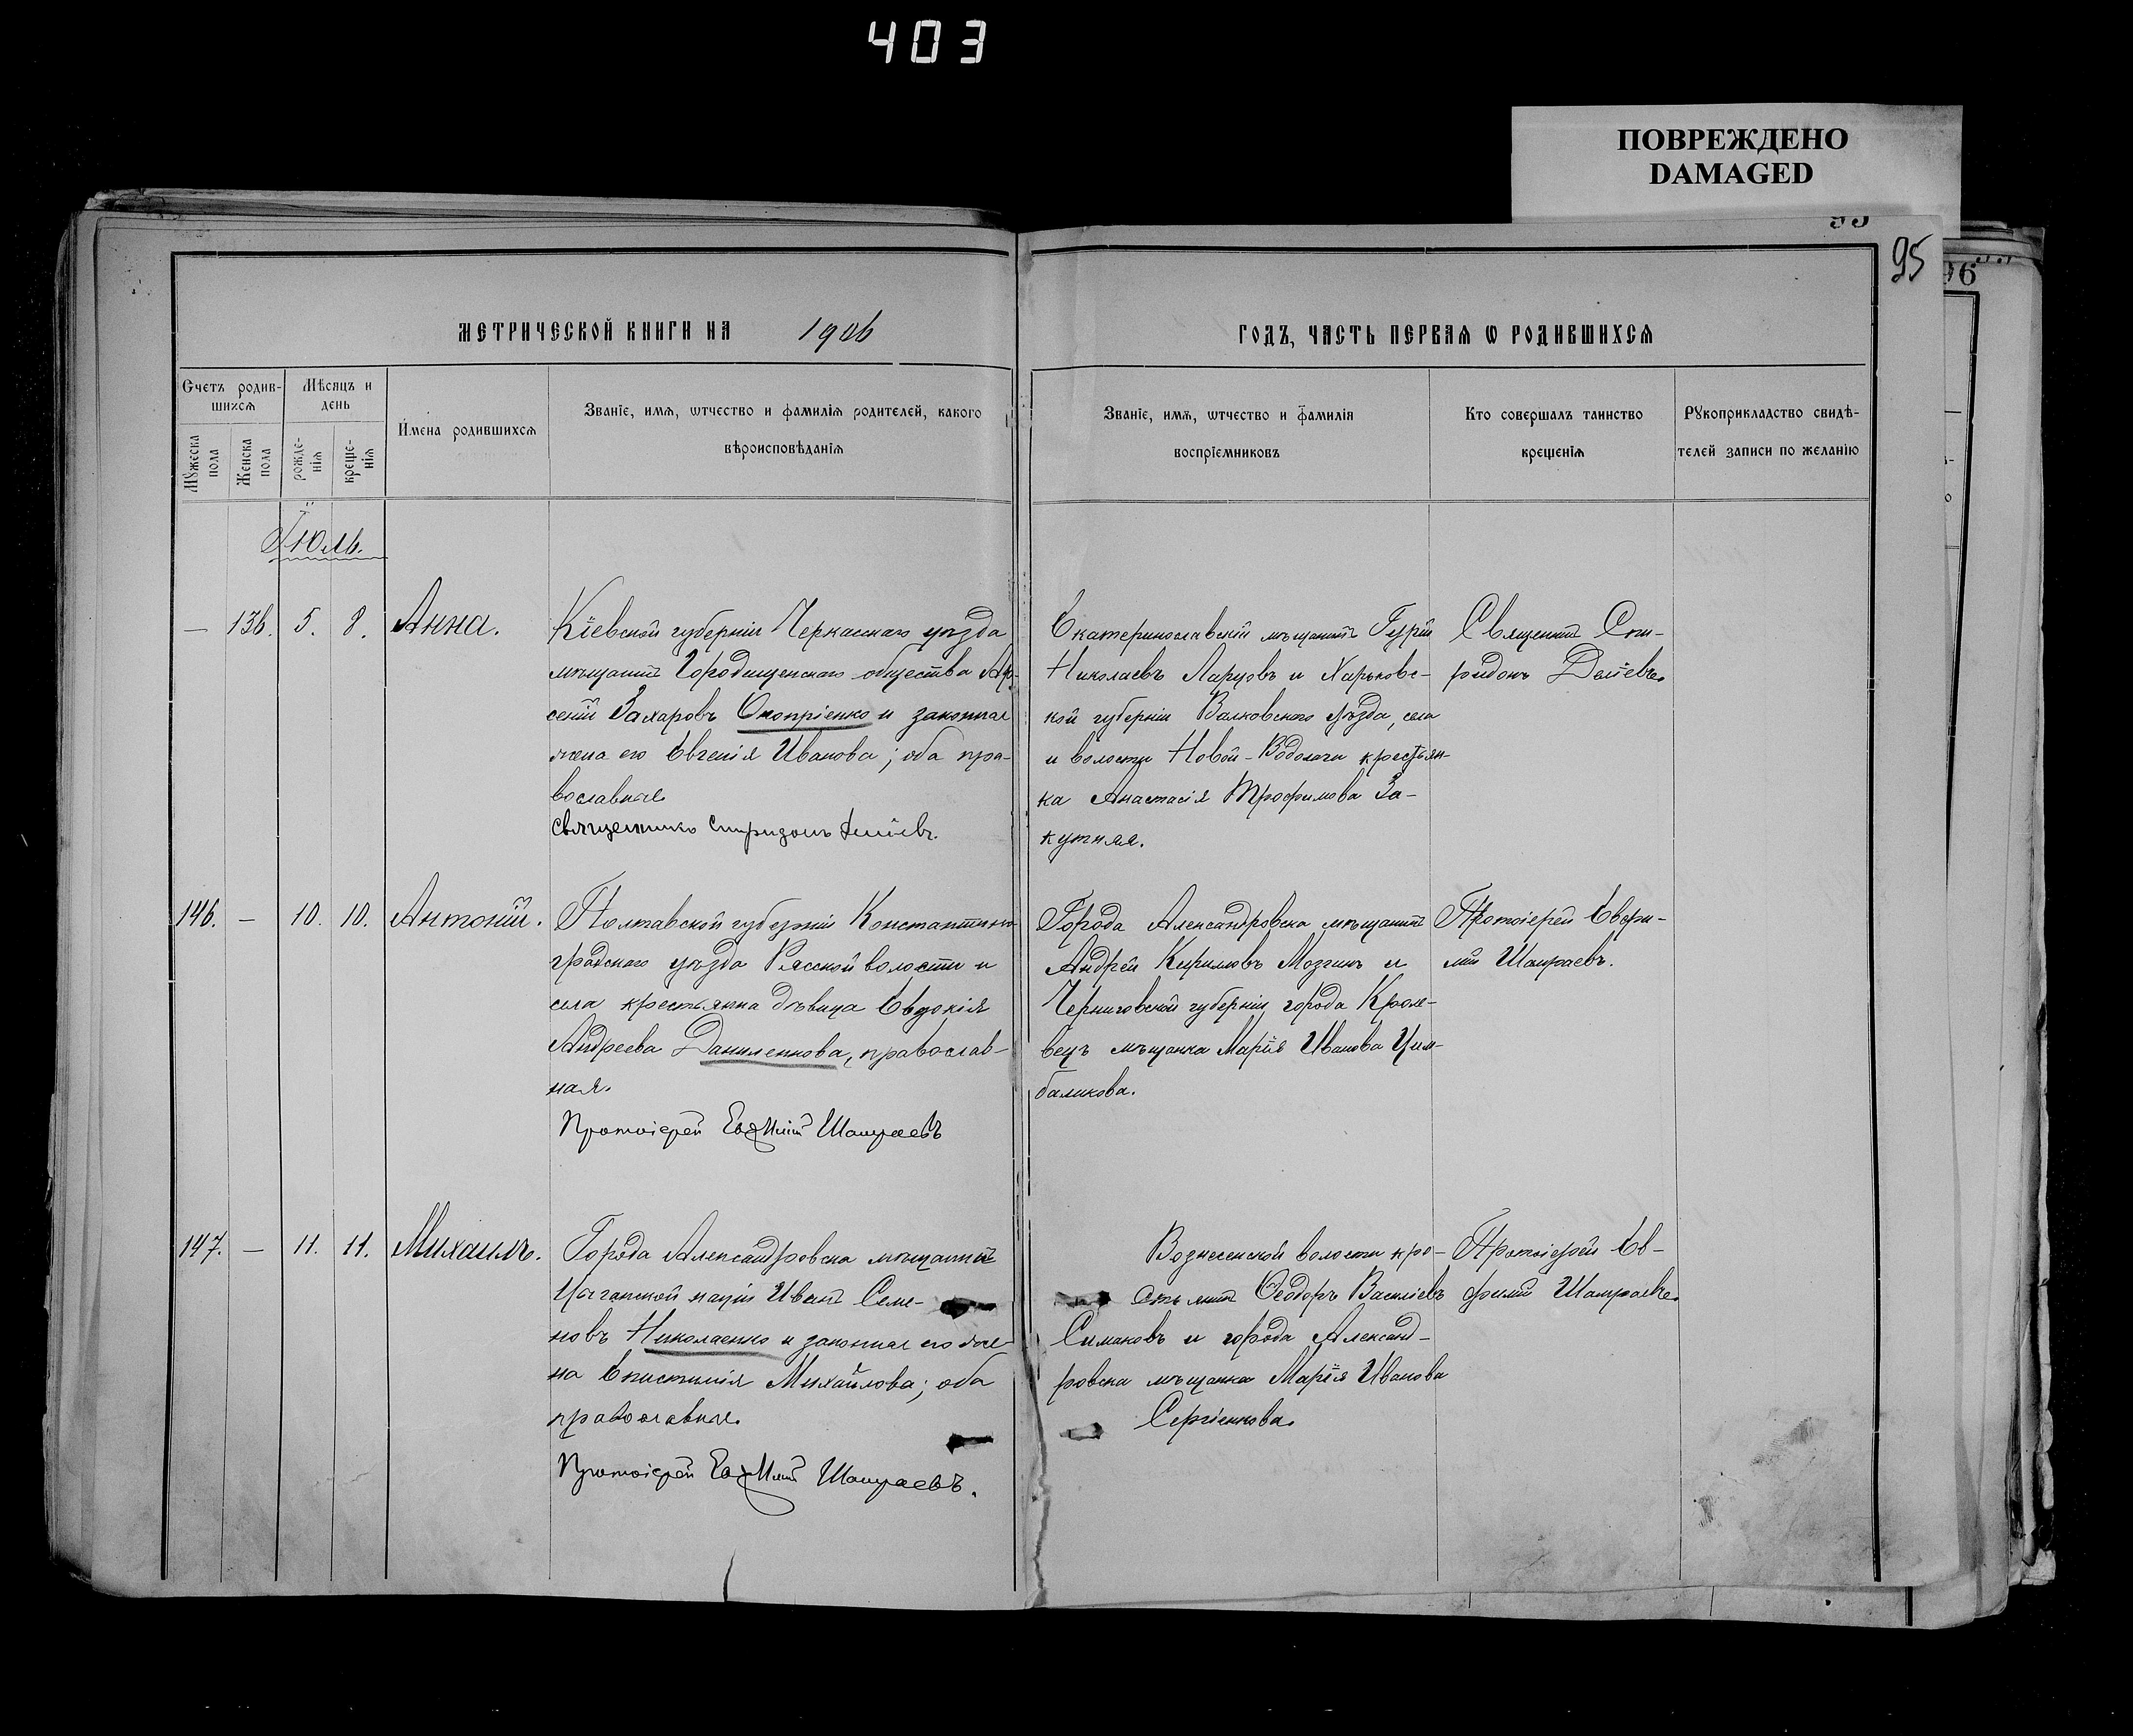 403
ПОВРЕЖДЕНО
DAMAGED
95
95
96
МЕТРИЧЕСКОЙ КНИГИ НА 1906 ГОДЪ, ЧАСТЬ ПЕРВАЯ Ѡ РОДИВШИХСЯ
Счетъ родив-
шихся
Мѣсяцъ и
день
Мужеска
пола
Женска
пола
рожде-
нія
креще-
нія
Имена родившихся
Званіе, имя, ѡтчество и фамилія родителей, какого
вѣроисповѣданія
Званіе, имя, ѡтчество и фамилія
воспріемниковъ
Кто совершалъ таинство
крещенія
Рукоприкладство свидѣ-
телей записи по желанію
Іюль.
— 136. 5. 8. Анна.
Кіевской губерніи Черкасскаго уѣзда
мѣщанинъ Городищенскаго общества Ар-
сеній Захаровъ Оноприенко и законная
жена его Евгенія Иванова; оба пра-
вославные.
Священникъ Спиридонъ Деліевъ.
Екатеринославскій мѣщанинъ Гурій
Николаевъ Ларцовъ и Харьковс-
кой губерніи Валковскаго уѣзда, села
и волости Новой-Водолаги крестьян-
ка Анастасія Трофимова За-
кутняя.
Священникъ Спи-
ридонъ Деліевъ.
146. — 10. 10. Антоній.
Полтавской губерніи Константино-
градскаго уѣзда Рясской волости и
села крестьянка дѣвица Евдокія
Андреева Даниленкова, православ-
ная.
Протоіерей Евѳимій Шамраевъ
Города Александровска мѣщанинъ
Андрей Кириловъ Мозгинъ и
Черниговской губерніи города Кроле-
вецъ мѣщанка Марія Иванова Цим-
баликова.
Протоіерей Евфи-
мій Шамраевъ.
147. — 11. 11. Михаилъ.
Города Александровска мѣщанинъ
Цыганской націи Иванъ Семе-
новъ Николаенко и законная его же-
на Епистимія Михайлова; оба
православные.
Протоіерей Евѳимій Шамраевъ.
Вознесенской волости кре-
стьянинъ Ѳеодоръ Василіевъ
Симаковъ и города Александ-
ровска мѣщанка Марія Иванова
Сергіенкова.
Протоіерей Ев-
фимій Шамраевъ.